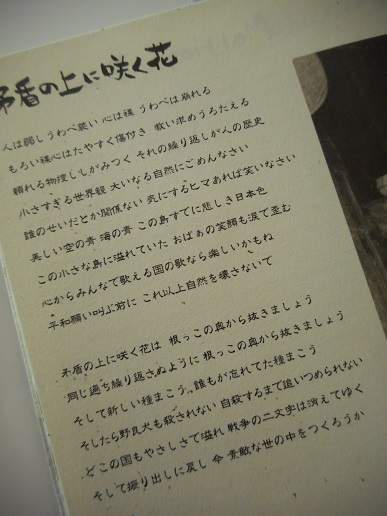 矛盾の上に咲く花
人は弱し うわべ装い 心は裸 うわべは崩れる
もろい裸心はたやすく傷付き 救い求めうろたえる
頼れる物理ししがみつく それの繰り返しが人の歴史
小さすぎる世界観 大いなる自然にごめんなさい
誰のせいだとか関係ない 気にするヒマあれば笑いなさい
美しい空の青 海の青 この島すでに悲しき日本色
この小さな島に溢れていた おばぁの笑顔も涙で歪む
心からみんなで歌える国の歌なら楽しいかもね
平和願い叫ぶ前に これ以上自然を壊さないで
矛盾の上に咲く花は 根っこの奥から抜きましょう
同じ過ち繰り返さぬように 根っこの奥から抜きましょう
そして新しい種まこう 誰もが忘れてた種まこう
そしたら野良犬も殺されない 自殺するまで追いつめられない
どこの国もやさしさで溢れ 戦争の二文字は消えてゆく
そして振り出しに戻し 今 素敵な世の中をつくろうか